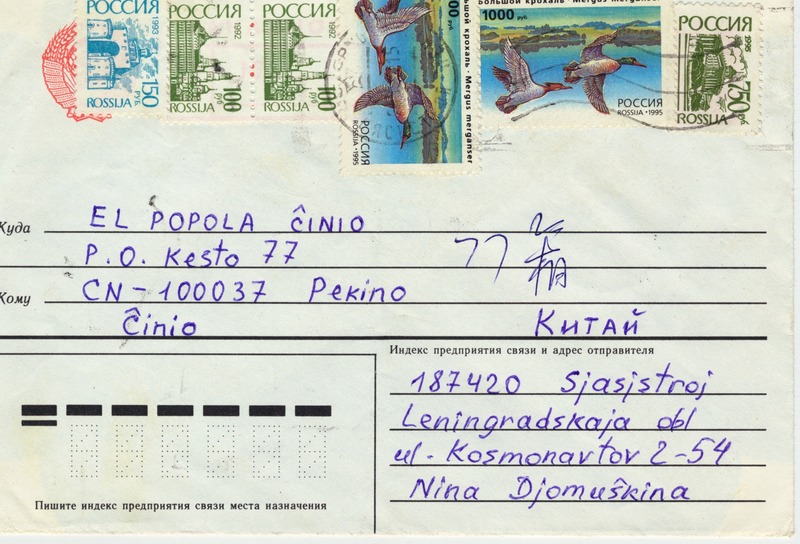 РОССИЯ 1993
150 РУБ
ROSSIJA
РОССИЯ 1992
100 РУБ
ROSSIJA
РОССИЯ 1992
100 РУБ
ROSSIJA
РОССИЯ
ROSSIJA • 1995
Mergus merganser
1000 руб.
Большой крохаль • Mergus merganser
РОССИЯ
ROSSIJA • 1995
РОССИЯ 1995
750 руб
ROSSIJA
Куда EL POPOLA ĈINIO
P.O. Kesto 77
77 箱
Кому CN-100037 Pekino
Ĉinio Китай
Индекс предприятия связи и адрес отправителя
187420 Sjasjstroj
Leningradskaja obl
ul. Kosmonavtov 2-54
Nina Djomuŝkina
Пишите индекс предприятия связи места назначения